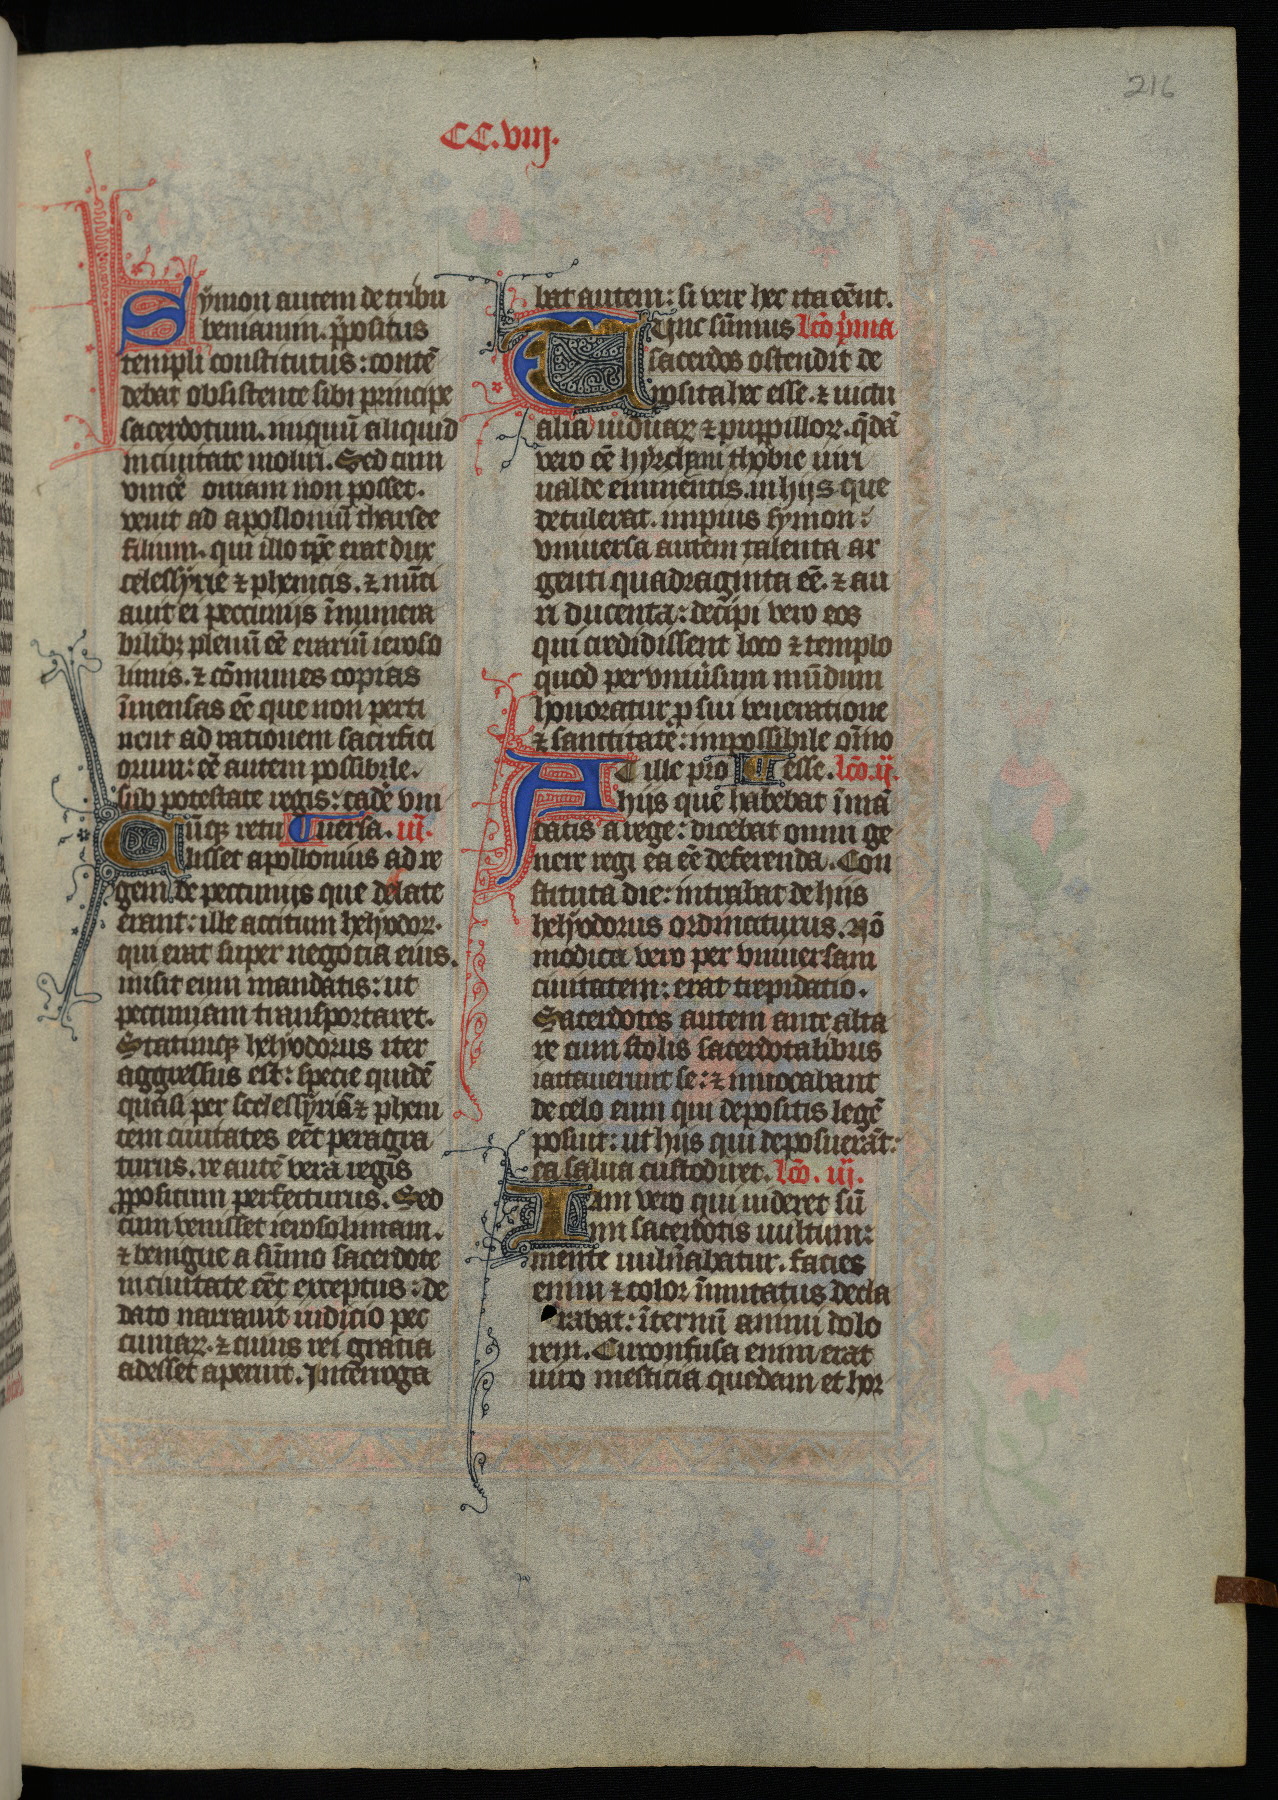 216
CC.viij.
Symon autem de tribu
beniamin. ppositus
templi constitutus: contē
debat obsistente sibi principe
sacerdotum. niquū aliquid
in ciuitate moliri. Sed cum
vincē oniam non posset.
venit ad apolloniū tharsee
filium. qui illo tpe erat dux
celessyrie ⁊ phenicis. ⁊ nūci
auit ei peccunijs īnumera
bilibꝫ plenū eē erariū ieroso
limis. ⁊ cōmunes copias
īmensas eē que non perti
nent ad rationem sacrifici
orum: eē autem possibile.
sub potestate regis: cadē vni
Cūqꝫ retu Tuersa. iij.
lisset apollonius ad re
gem de peccunijs que delate
erant: ille accitum helyodor.
qui erat super negotia eius.
misit cum mandatis: ut
peccuniam transportaret.
Statimqꝫ helyodorus iter
aggressus est: specie quidē
quasi per scelessyriā ⁊ pheni
cem ciuitates eēt peragra
turus. re autē vera regis
ppositum perfecturus. Sed
cum venisset ierosolimam.
⁊ benigne a sūmo sacerdote
in ciuitate eēt exceptus: de
dato narrauit iudicio pec
cuniaꝝ. ⁊ cuius rei gratia
adesset aperuit. Interroga
bat autem: si vere hec ita eēnt.
Tunc sūmus lcō pma
sacerdos ostendit de
posita hec esse. ⁊ uictu
alia uiduaꝝ ⁊ puppilloꝝ. qdā
vero eē hyrchani thobie uiri
ualde eminentis. in hijs que
detulerat. impius symon:
vniuersa autem talenta ar
genti quadraginta eē. ⁊ au
ri ducenta: decipi vero eos
qui credidissent loco ⁊ templo
quod per vniūsum mūdum
honoratur p sui veneratione
⁊ sanctitate: impossibile oīno
At ille pro Tesse. lcō. ij.
hijs que habebat ī mā
datis a rege: dicebat omni ge
nere regi ea eē deferenda. Con
stituta die: intrabat de hijs
helyodorus ordinaturus. Nō
modica vero per vniuersam
ciuitatem: erat trepidatio.
Sacerdotes autem ante alta
re cum stolis sacerdotalibus
iactauerunt se: ⁊ inuocabant
de celo eum qui depositis legē
posuit: ut hijs qui deposuerāt:
ea salua custodiret. lcō. iij.
Iam vero qui uideret sū
mi sacerdotis uultum:
mente uulnabatur. facies
enim ⁊ color īmutatus decla
rabat: īternū animi dolo
rem. Circonfusa enim erat
uiro mesticia quedam et hor